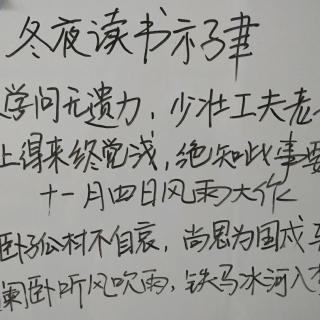 冬夜读书示子聿
学问无遗力,少壮工夫老
上得来终觉浅,绝知此事要
十一月四日风雨大作
卧孤村不自哀,尚思为国戍
阑卧听风吹雨,铁马冰河入